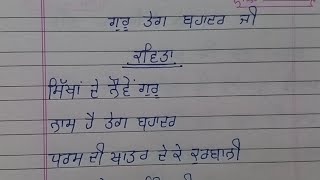 ਗੁਰੂ ਤੇਗ ਬਹਾਦਰ ਜੀ
ਕਵਿਤਾ
ਸਿੱਖਾਂ ਦੇ ਨੌਵੇਂ ਗੁਰੂ
ਨਾਮ ਹੈ ਤੇਗ ਬਹਾਦਰ
ਧਰਮ ਦੀ ਖਾਤਰ ਦੇ ਕੇ ਕੁਰਬਾਨੀ